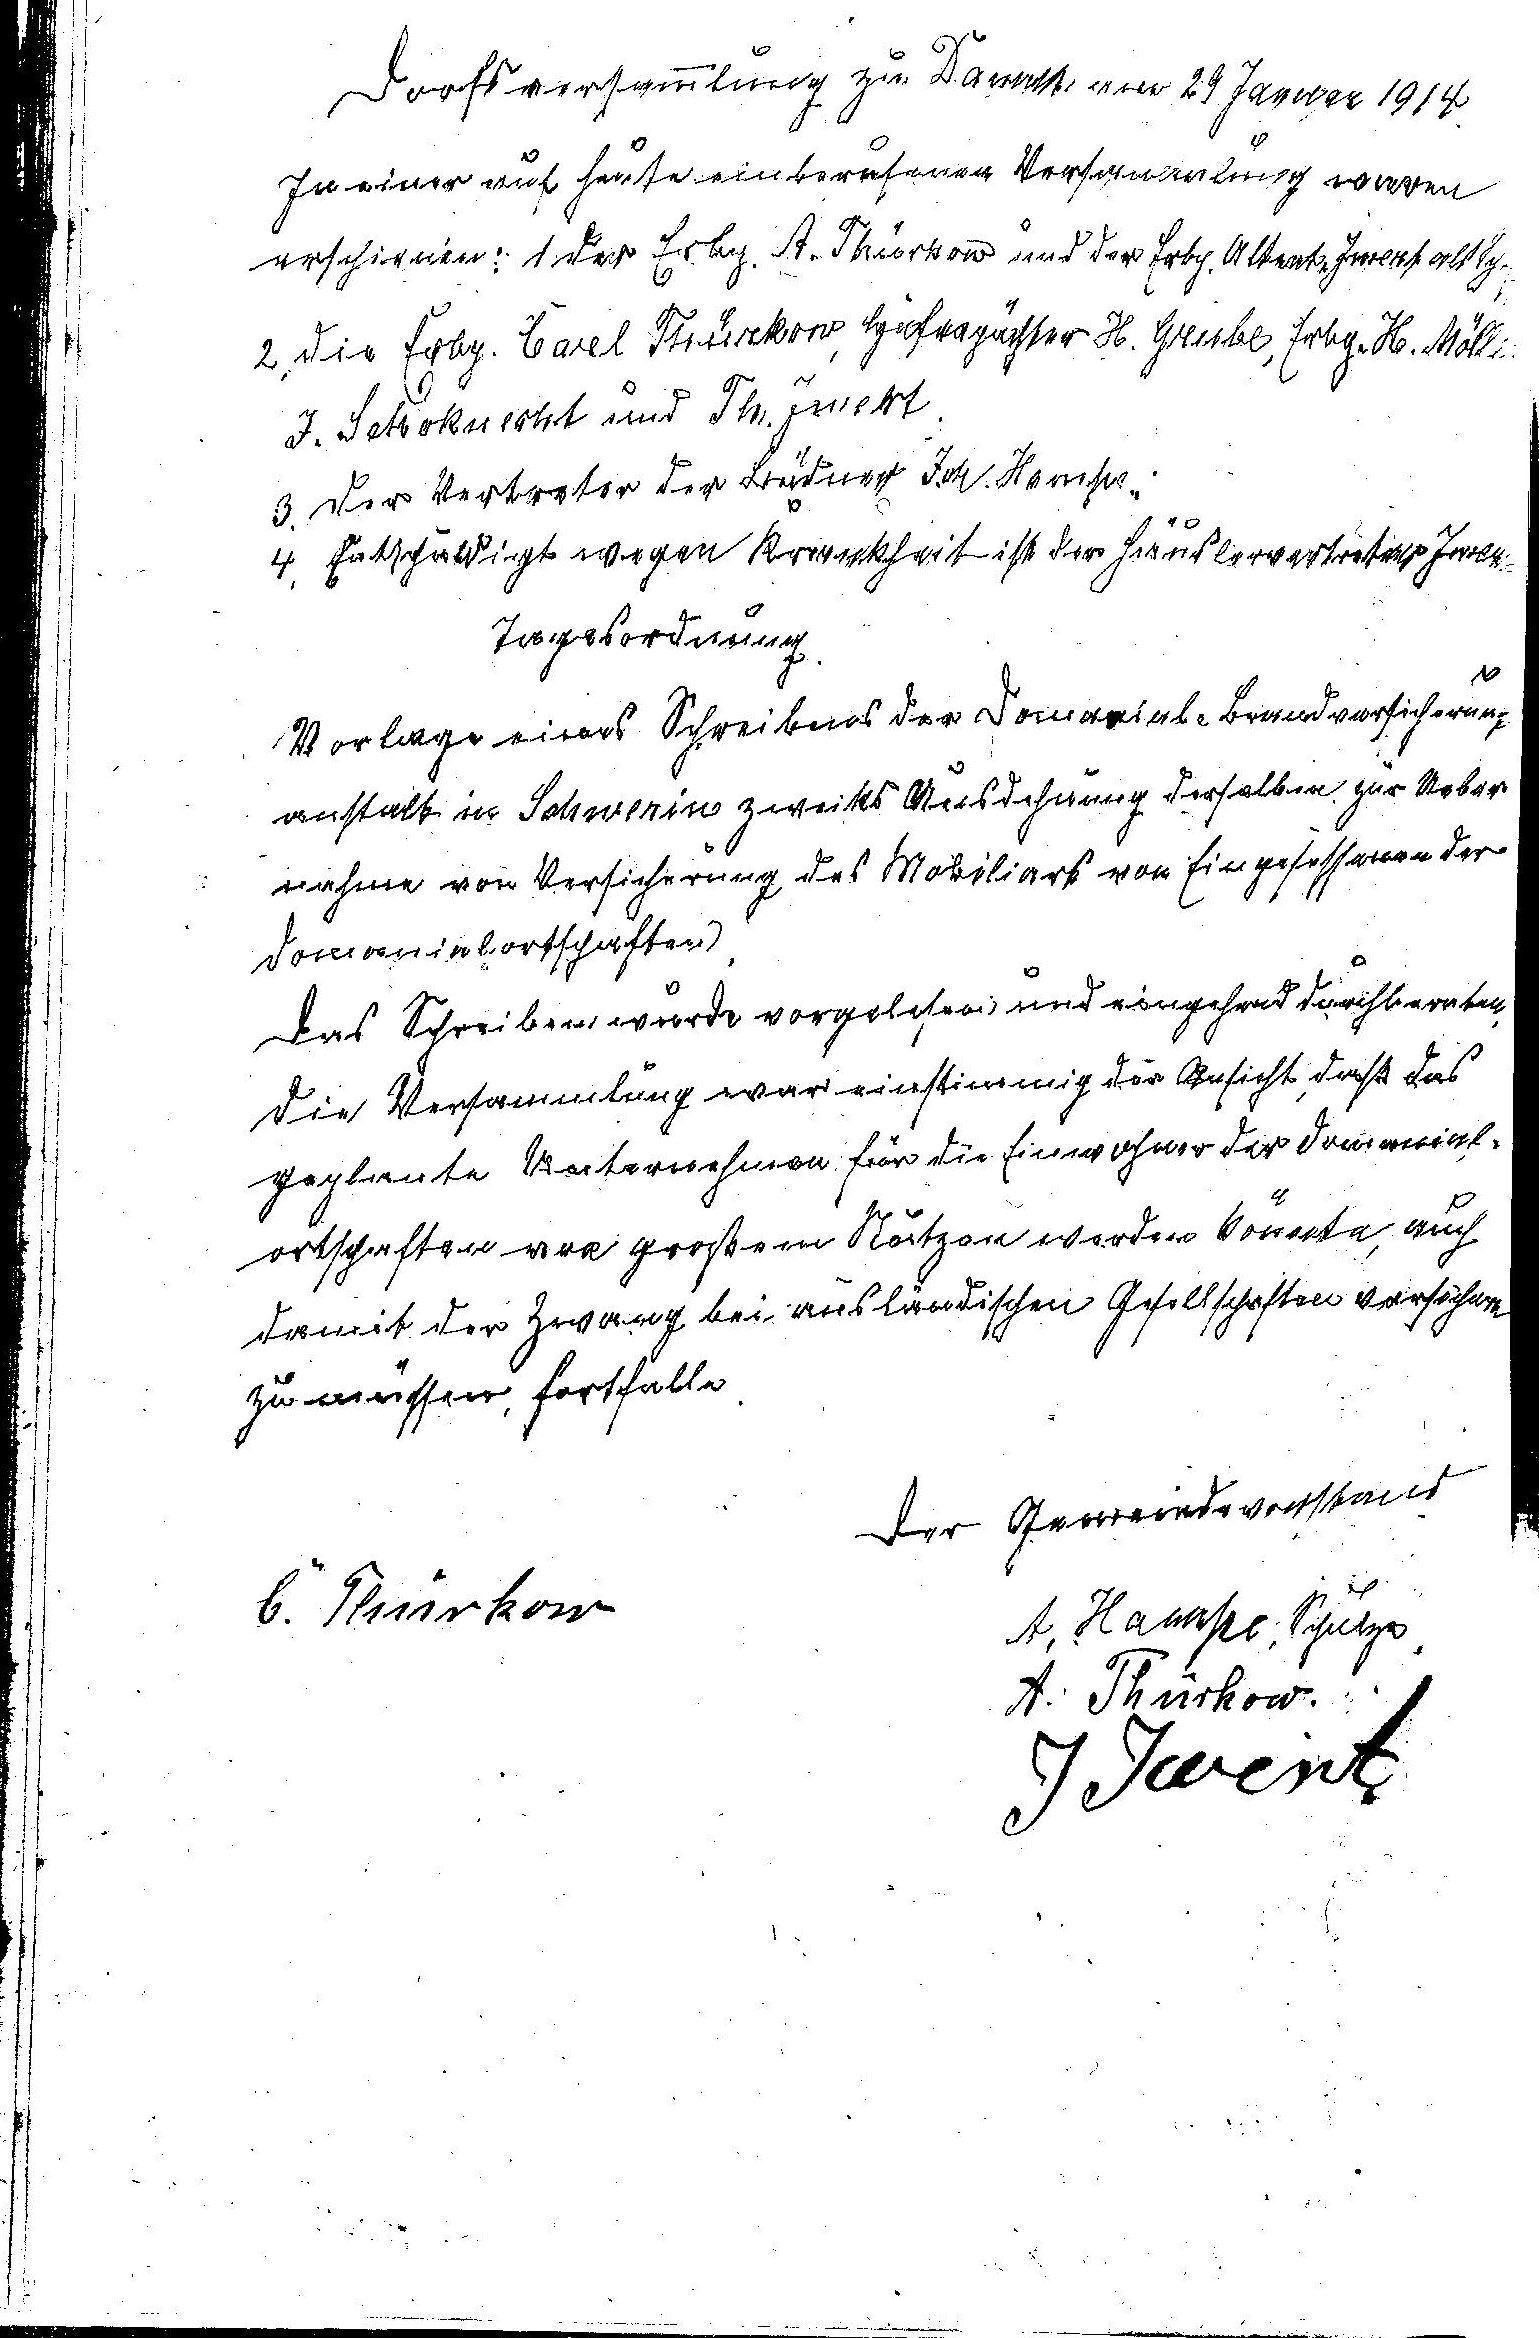 Dorfsversam̄lung zu Damm am 29 Januar 1914
In einer auf heute einberufenen Versammlung waren
erschienen: 1 der Erbp. A. Thürkow und der Erbp. Altent.
2, die Erbp. Carl Thürkow, Hufenpächter H. Grube, Erbp. H.
J. Schoknecht und Th.
3. der Vertreter der Büdner Joh. Hampe.
4, Entschuldigt wegen Krankheit ist der Häuslervertreter
Tagesordnung.
Vorlage eines Schreibens der Domanial-Brandversicherung
anstalt in Schwerin zwecks Ausdehnung derselben zur Ueber
nahme von Versicherung des Mobiliars von Eingesessenen der
Domanialortschaften.
Das Schreiben wurde vorgelesen und eingehend durchberaten,
die Versammlung war einstimmig der Ansicht, daß das
geplante Unternehmen für die Einwohner der Domanial-
ortschaften von großem Nutzen werden könnte, auch
damit der Zwang bei ausländischen Gesellschaften versichern
zu müssen, fortfalle.
Der Gemeindevorstand
C. Thürkow
A, Hampe, Schulze,
A. Thürkow.